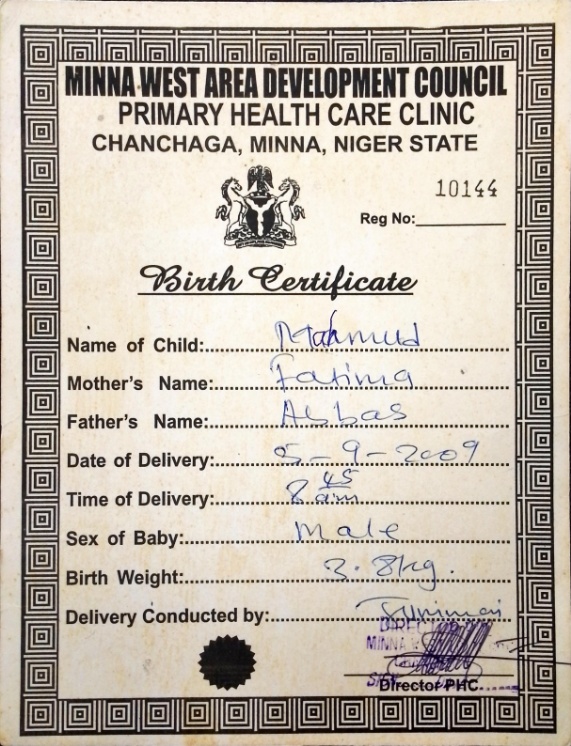 MINNA WEST AREA DEVELOPMENT COUNCIL
PRIMARY HEALTH CARE CLINIC
CHANCHAGA, MINNA, NIGER STATE
10144
Reg No:
Birth Certificate
Name of Child: Mahmud
Mother's Name: Fatima
Father's Name: Abbas
Date of Delivery: 5-9-2009
Time of Delivery: 8 45 am
Sex of Baby: Male
Birth Weight: 3.8kg.
Delivery Conducted by:
MINNA
Director PHC